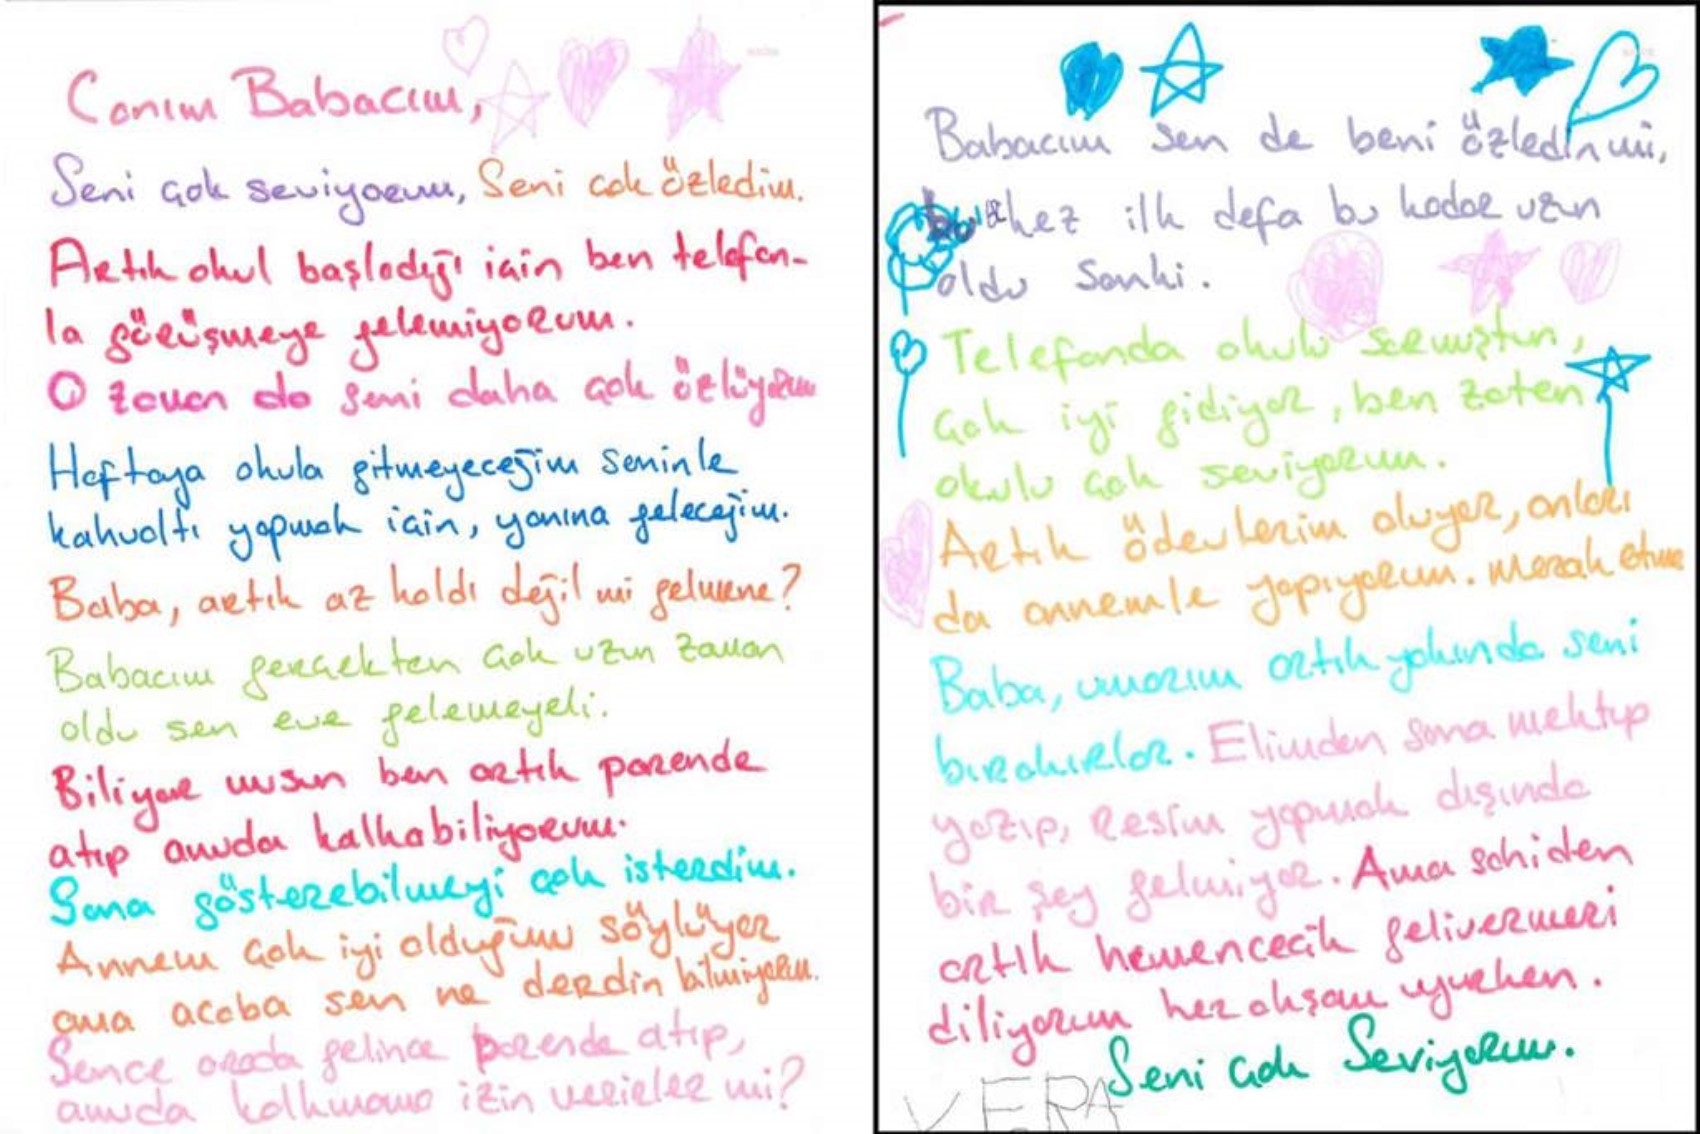 Canım Babacım,
Seni çok seviyorum, Seni çok özledim.
Artık okul başladığı için ben telefon-
la görüşmeye gelemiyorum.
O zaman da seni daha çok özlüyorum
Haftaya okula gitmeyeceğim seninle
kahvaltı yapmak için, yanına geleceğim.
Baba, artık az kaldı değil mi gelmene?
Babacım gerçekten çok uzun zaman
oldu sen eve gelemeyeli.
Biliyor musun ben artık parende
atıp amuda kalkabiliyorum.
Sana gösterebilmeyi çok isterdim.
Annem çok iyi olduğumu söylüyor
ama acaba sen ne derdin bilmiyorum.
Sence orada gelince parende atıp,
amuda kalkmama izin verirler mi?
Babacım sen de beni özledin mi,
bu kez ilk defa bu kadar uzun
oldu sanki.
Telefonda okulu sormuştun,
çok iyi gidiyor, ben zaten
okulu çok seviyorum.
Artık ödevlerim oluyor, onları
da annemle yapıyorum. merak etme
Baba, umarım artık yakında seni
bırakırlar. Elimden sana mektup
yazıp, resim yapmak dışında
bir şey gelmiyor. Ama sahiden
artık hemencecik gelivermeni
diliyorum her akşam uyurken.
Seni çok Seviyorum.
VERA